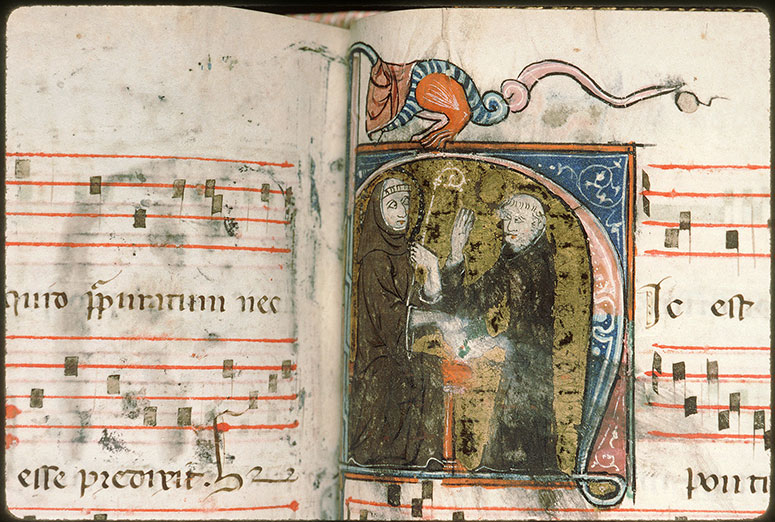 quid p̄paratum nec
esse predixit.
HIc est
ponti